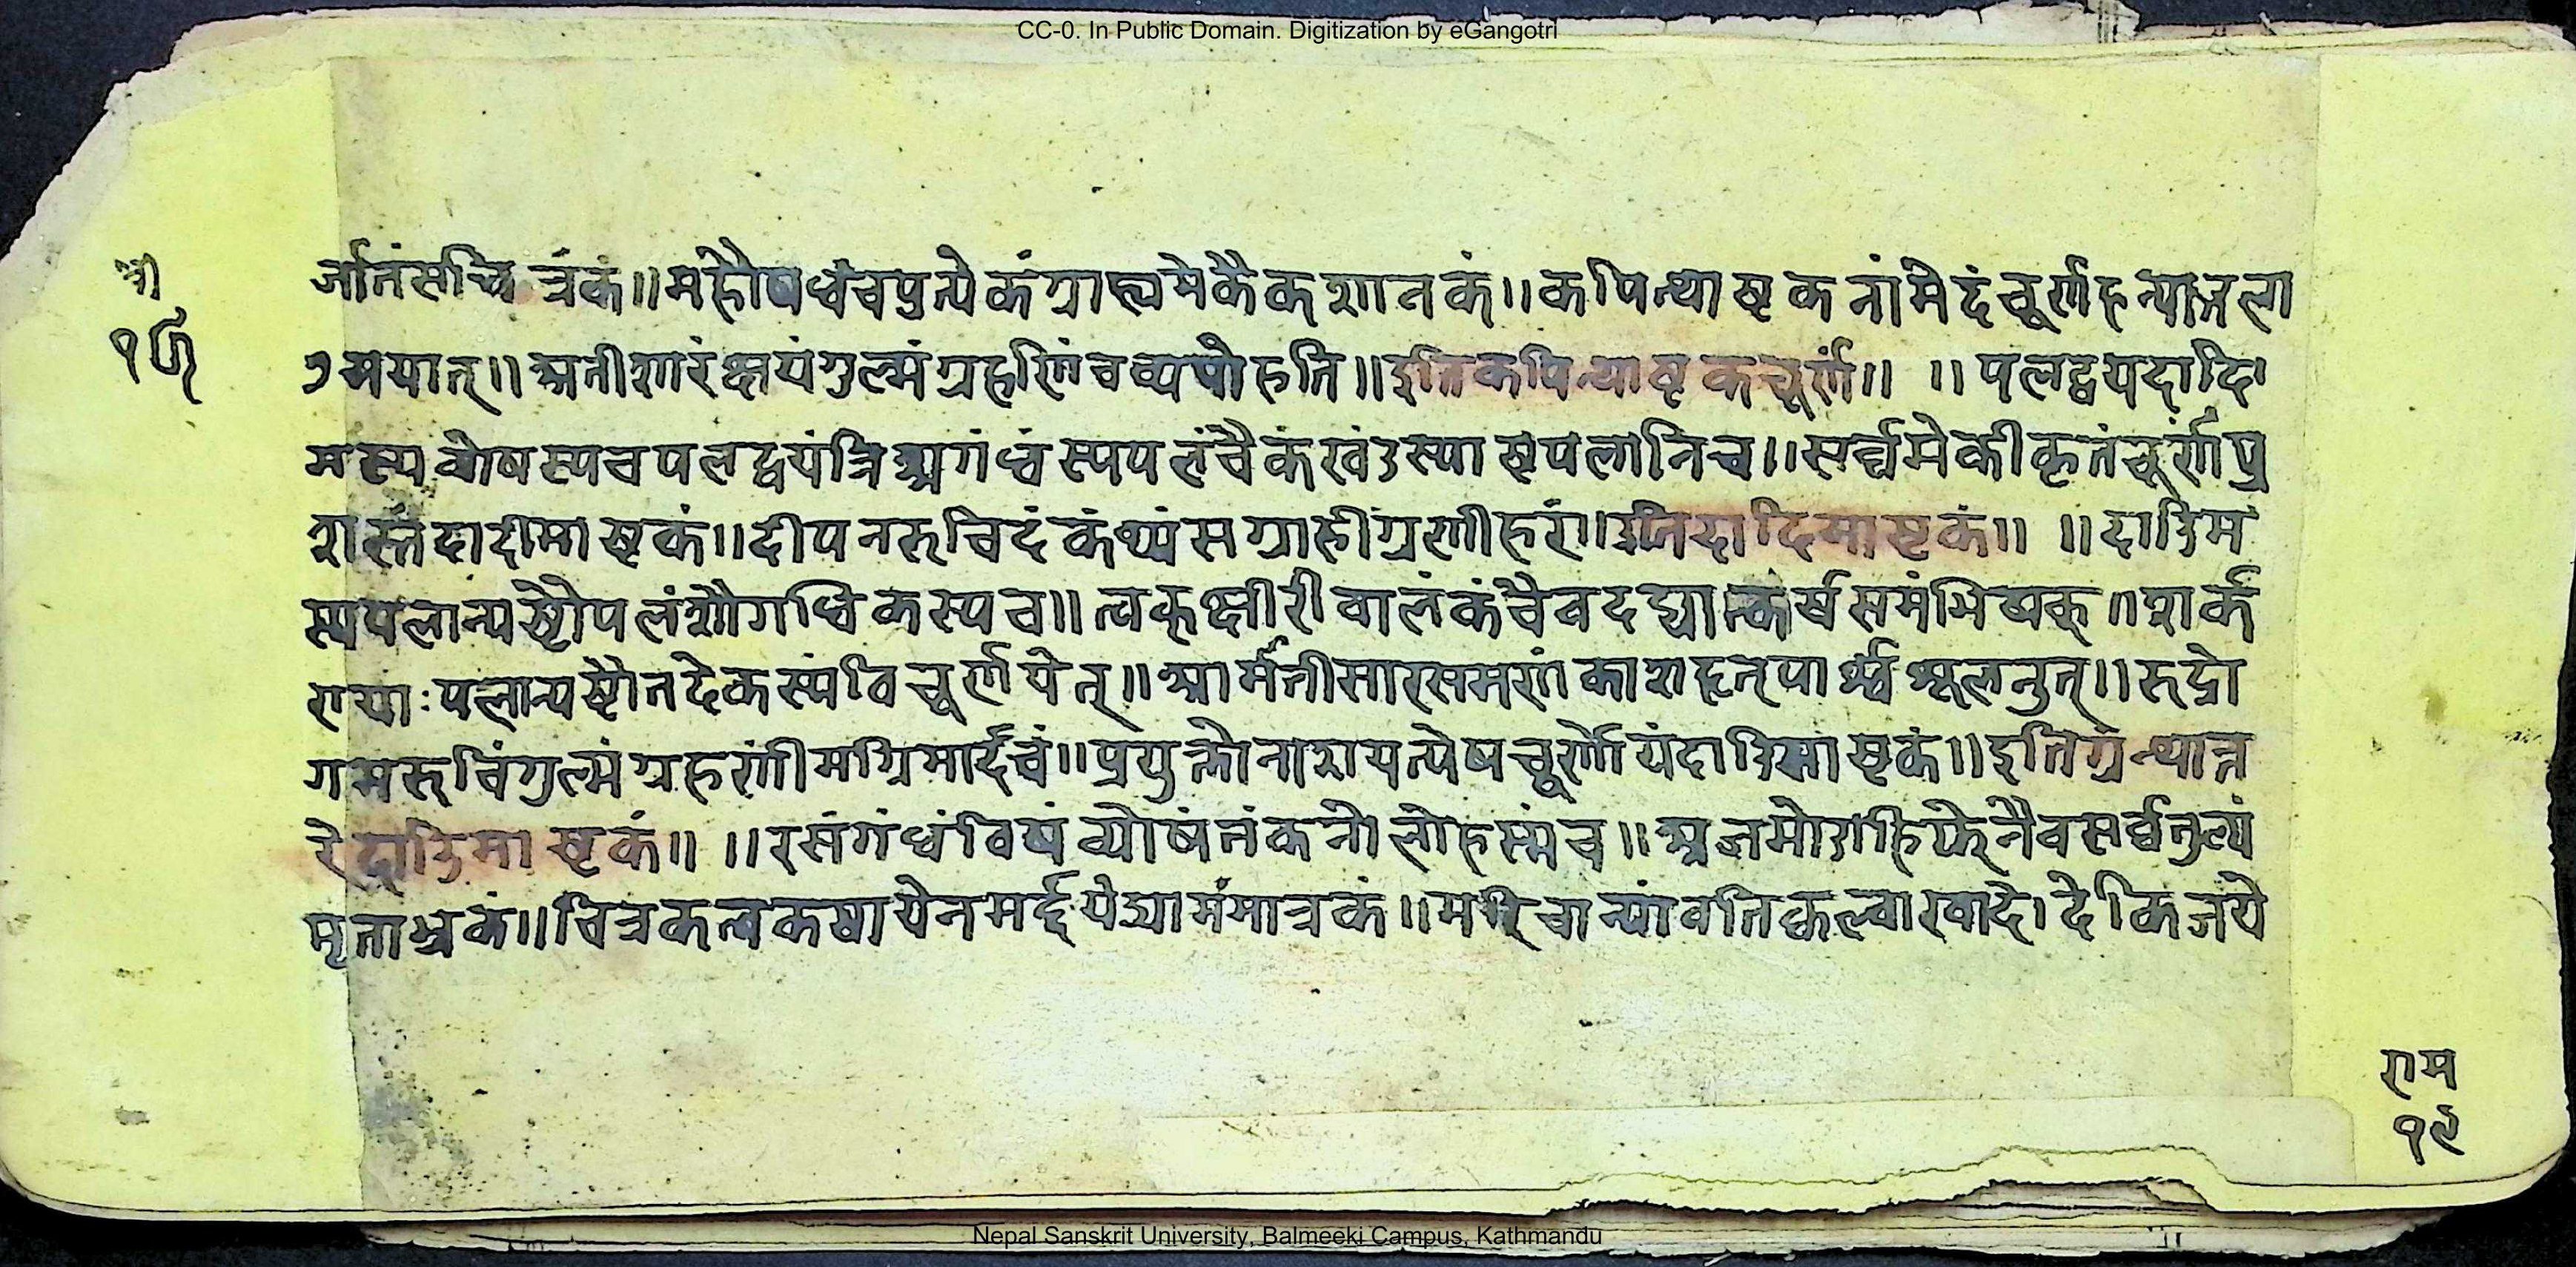 CC-0. In Public Domain. Digitization by eGangotri
श्री
र्जातंसचित्रंकं॥महौषध्वंचप्रत्येकंग्राह्यमेकैकशानकं॥कपित्थाष्टकनांमेदंचूर्णहन्याज्गला
मयान्॥अतीशारंक्षयंगुल्मंग्रहणिंचव्यपोहति॥इतिकपित्थाष्टकचूर्णं॥ ॥पलद्वयदादि
मस्यव्योषस्यचपलद्वयंत्रिअगंध्वंस्यपलंचैकंखंडस्याष्टपलानिच॥सर्व्वमेकीकृतंचूर्णंप्र
शस्तंदादीमाष्टकं॥दीपनरुचिदंकंथ्यंसग्राहींग्रणीहरं॥इतिदादिमाष्टकं॥ ॥दाडिम
स्यपलान्यष्टौपलंशौगंधिकस्यच॥त्वक्क्षीरीवालंकंचैवदद्यात्कर्षसमंभिषक्॥शर्क
रायाःपलान्यष्टौतदेकस्यंविचूर्णयेत्॥आमतीसारसमरणंकाशहृत्पार्श्वश्शूलनुत्॥रुद्रो
गमरुचिंगुल्मंग्रहणींमग्निमार्दवं॥प्रयुक्तोनाशयत्येषचूर्णोयंदाडिमाष्टकं॥इतिग्रंन्थान्त
रेदाडिमाष्टकं॥ ॥रसंगंध्वंविषंव्योषंतंकनोलोहस्मंच॥अजमोदाहिफेनैवसर्व्वतुल्यं
मृताभ्रकं॥चित्रकत्वकषायेनमर्द्दयेद्यामंमात्रकं॥मरिचान्यांवतिंकृत्वाखादेदेकंजये
राम
१९
Nepal Sanskrit University, Balmeeki Campus, Kathmandu